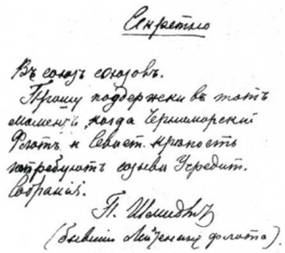 Секретно
Въ союзъ союзовъ.
Прошу поддержки въ тотъ
моментъ, когда Черноморскій
Флотъ и Севаст. крѣпость
потребуютъ созыва Учредит.
Собранія.
П. Шмидтъ
(бывшій Лейтенантъ флота).